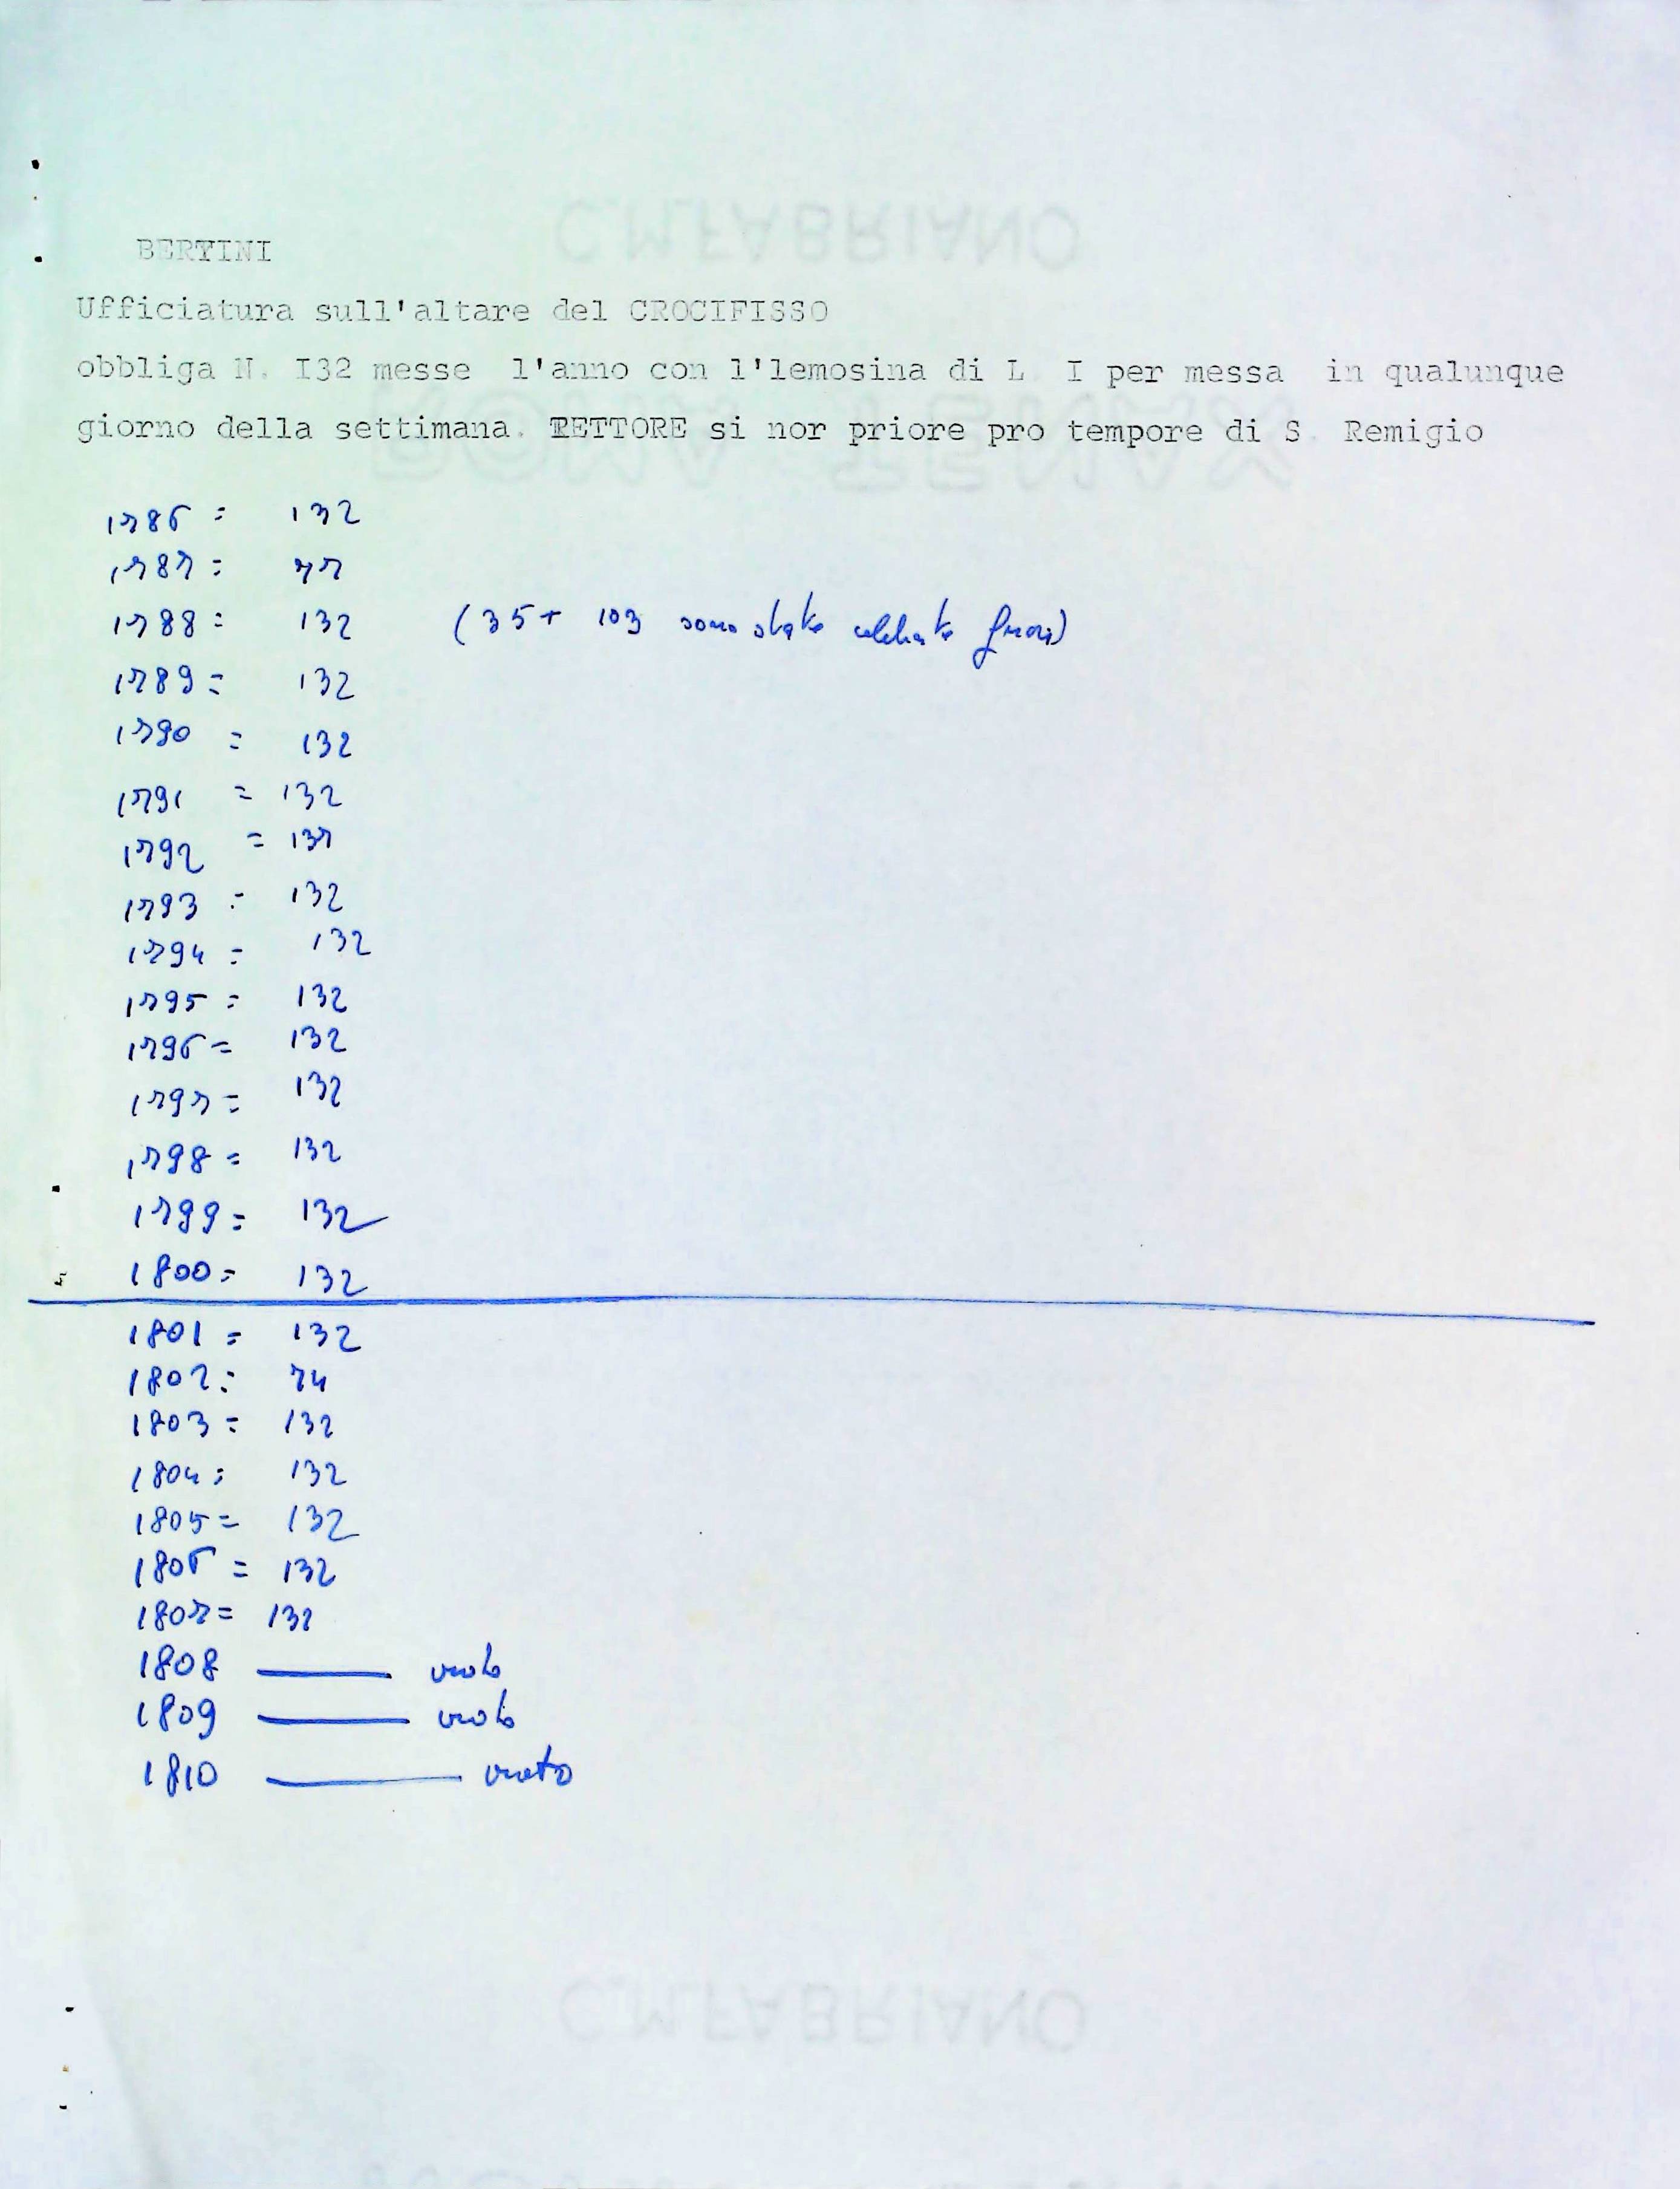 C.M.FABRIANO
BERTINI
Ufficiatura sull'altare del CROCIFISSO
obbliga N. I32 messe l'anno con l'lemosina di L. I per messa in qualunque
ROMA TENAX
giorno della settimana. RETTORE si nor priore pro tempore di S. Remigio
1786 = 132
1787 = 77
1788 = 132 (35+ 103 sono state celebrate fuori)
1789 = 132
1790 = 132
1791 = 132
1792 = 137
1793 = 132
1794 = 132
1795 = 132
1796 = 132
1797 = 132
1798 = 132
1799 = 132
1800 = 132
1801 = 132
1802 = 74
1803 = 132
1804 = 132
1805 = 132
1806 = 132
1807 = 132
1808 ——— vuoto
1809 ——— vuoto
1810 ——— vuoto
C.M.FABRIANO